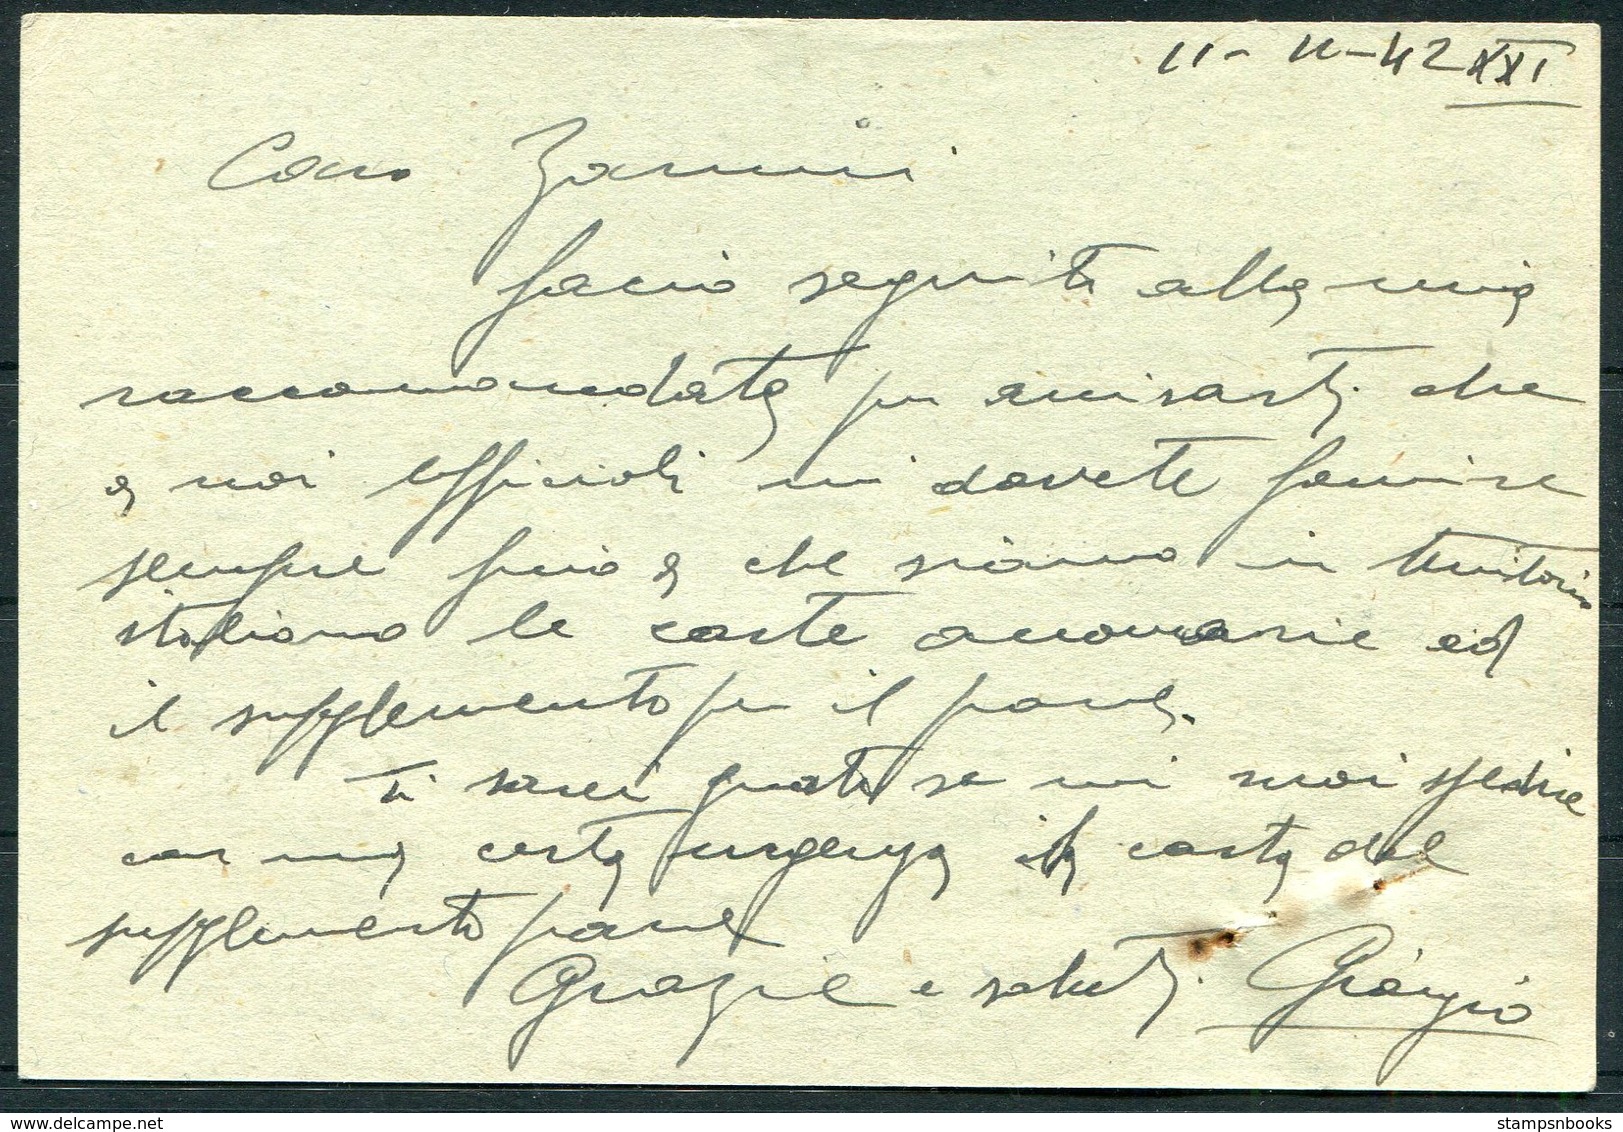 11-11-42 XXI
Caro Zannini
faccio seguito alla mia
raccomandata per avvisarti che
a noi ufficiali ci dovete fornire
sempre fino a che siamo in territorio
italiano le carte annonarie ed
il supplemento per il pane.
Ti sarei grato se mi vuoi spedire
con una certa urgenza la carta del
supplemento pane
Grazie e saluti. Giorgio
stampsnbooks
delcampe.net